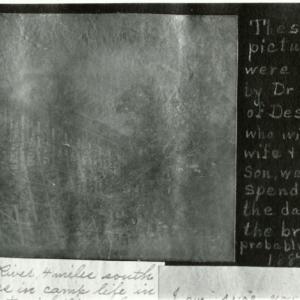 Thes
pictu
were
by Dr
of Des
who wi
wife +
Son, we
spend
the da
the br
probably
188
River 4 miles south
es in camp life in